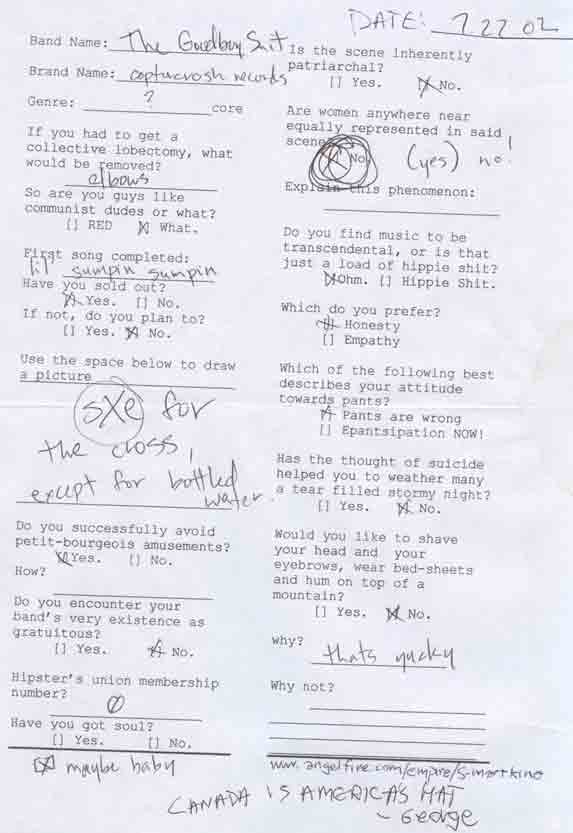 DATE: 7 22 02
Band Name: The Goodboy Suit
Brand Name: coptercrash records
Genre: ? core
If you had to get a
collective lobectomy, what
would be removed?
elbows
So are you guys like
communist dudes or what?
[] RED [X] What.
First song completed:
lil' sumpin sumpin
Have you sold out?
[X] Yes. [] No.
If not, do you plan to?
[] Yes. [X] No.
Use the space below to draw
a picture
sXe for
the cross,
except for bottled
water.
Do you successfully avoid
petit-bourgeois amusements?
[X] Yes. [] No.
How?
Do you encounter your
band's very existence as
gratuitous?
[] Yes. [X] No.
Hipster's union membership
number?
0
Have you got soul?
[] Yes. [] No.
[X] maybe baby
Is the scene inherently
patriarchal?
[] Yes. [X] No.
Are women anywhere near
equally represented in said
scene?
[X] No. (yes) no!
Explain this phenomenon:
Do you find music to be
transcendental, or is that
just a load of hippie shit?
[X] Ohm. [] Hippie Shit.
Which do you prefer?
[X] Honesty
[] Empathy
Which of the following best
describes your attitude
towards pants?
[X] Pants are wrong
[] Epantsipation NOW!
Has the thought of suicide
helped you to weather many
a tear filled stormy night?
[] Yes. [X] No.
Would you like to shave
your head and your
eyebrows, wear bed-sheets
and hum on top of a
mountain?
[] Yes. [X] No.
why?
thats yucky
Why not?
www.angelfire.com/empire/
CANADA IS AMERICAS HAT
~ George